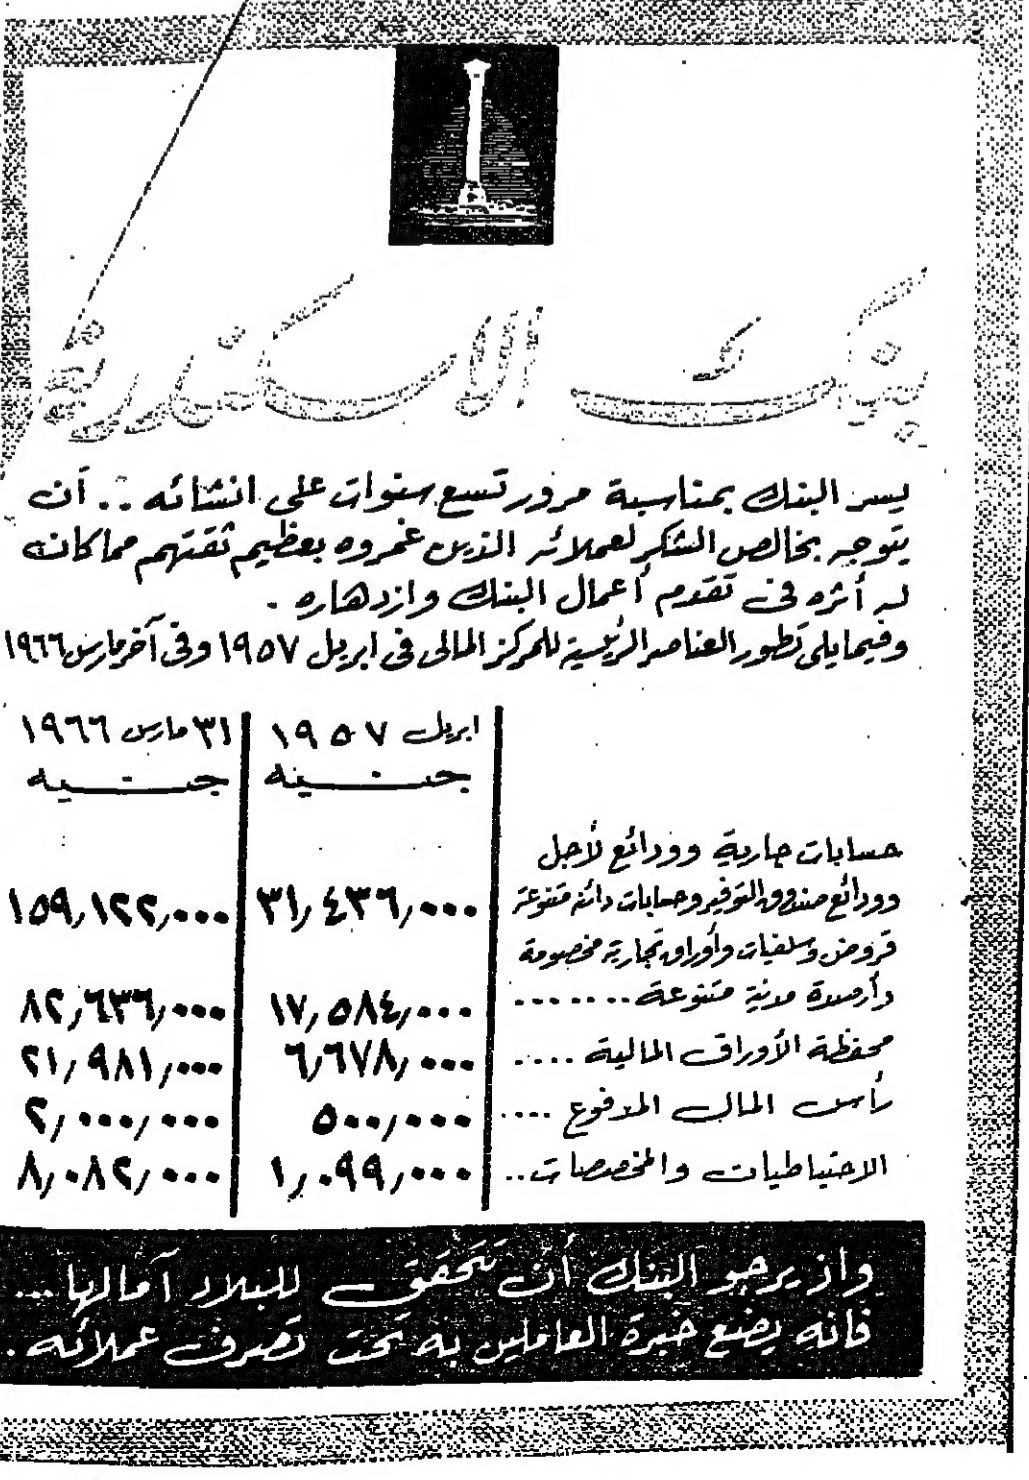 بنك الاسكندرية
يسر البنك بمناسبة مرور تسع سنوات على انشائه .. أن
يتوجه بخالص الشكر لعملائه الذين غمروه بعظيم ثقتهم مما كان
له أثره في تقدم أعمال البنك وازدهاره .
وفيما يلى تطور العناصر الرئيسية للمركز المالى فى ابريل ١٩٥٧ وفى آخر مارس ١٩٦٦
ابريل ١٩٥٧ ٣١ مارس ١٩٦٦
جنيه جنيه
حسابات جارية وودائع لأجل
وودائع صندوق التوفير وحسابات دائنة متنوعة ٣١,٤٣٦,٠٠٠ ١٥٩,١٢٢,٠٠٠
قروض وسلفيات وأوراق تجارية مخصومة
وأرصدة مدينة متنوعة ........ ١٧,٥٨٤,٠٠٠ ٨٢,٦٣٦,٠٠٠
محفظة الأوراق المالية ..... ٦,٦٧٨,٠٠٠ ٢١,٩٨١,٠٠٠
رأس المال المدفوع .... ٥٠٠,٠٠٠ ٢,٠٠٠,٠٠٠
الاحتياطيات والمخصصات .. ١,٠٩٩,٠٠٠ ٨,٠٨٢,٠٠٠
واذ يرجو البنك أن تتحقق للبلاد آمالها ...
فانه يضع خبرة العاملين به تحت تصرف عملائه .